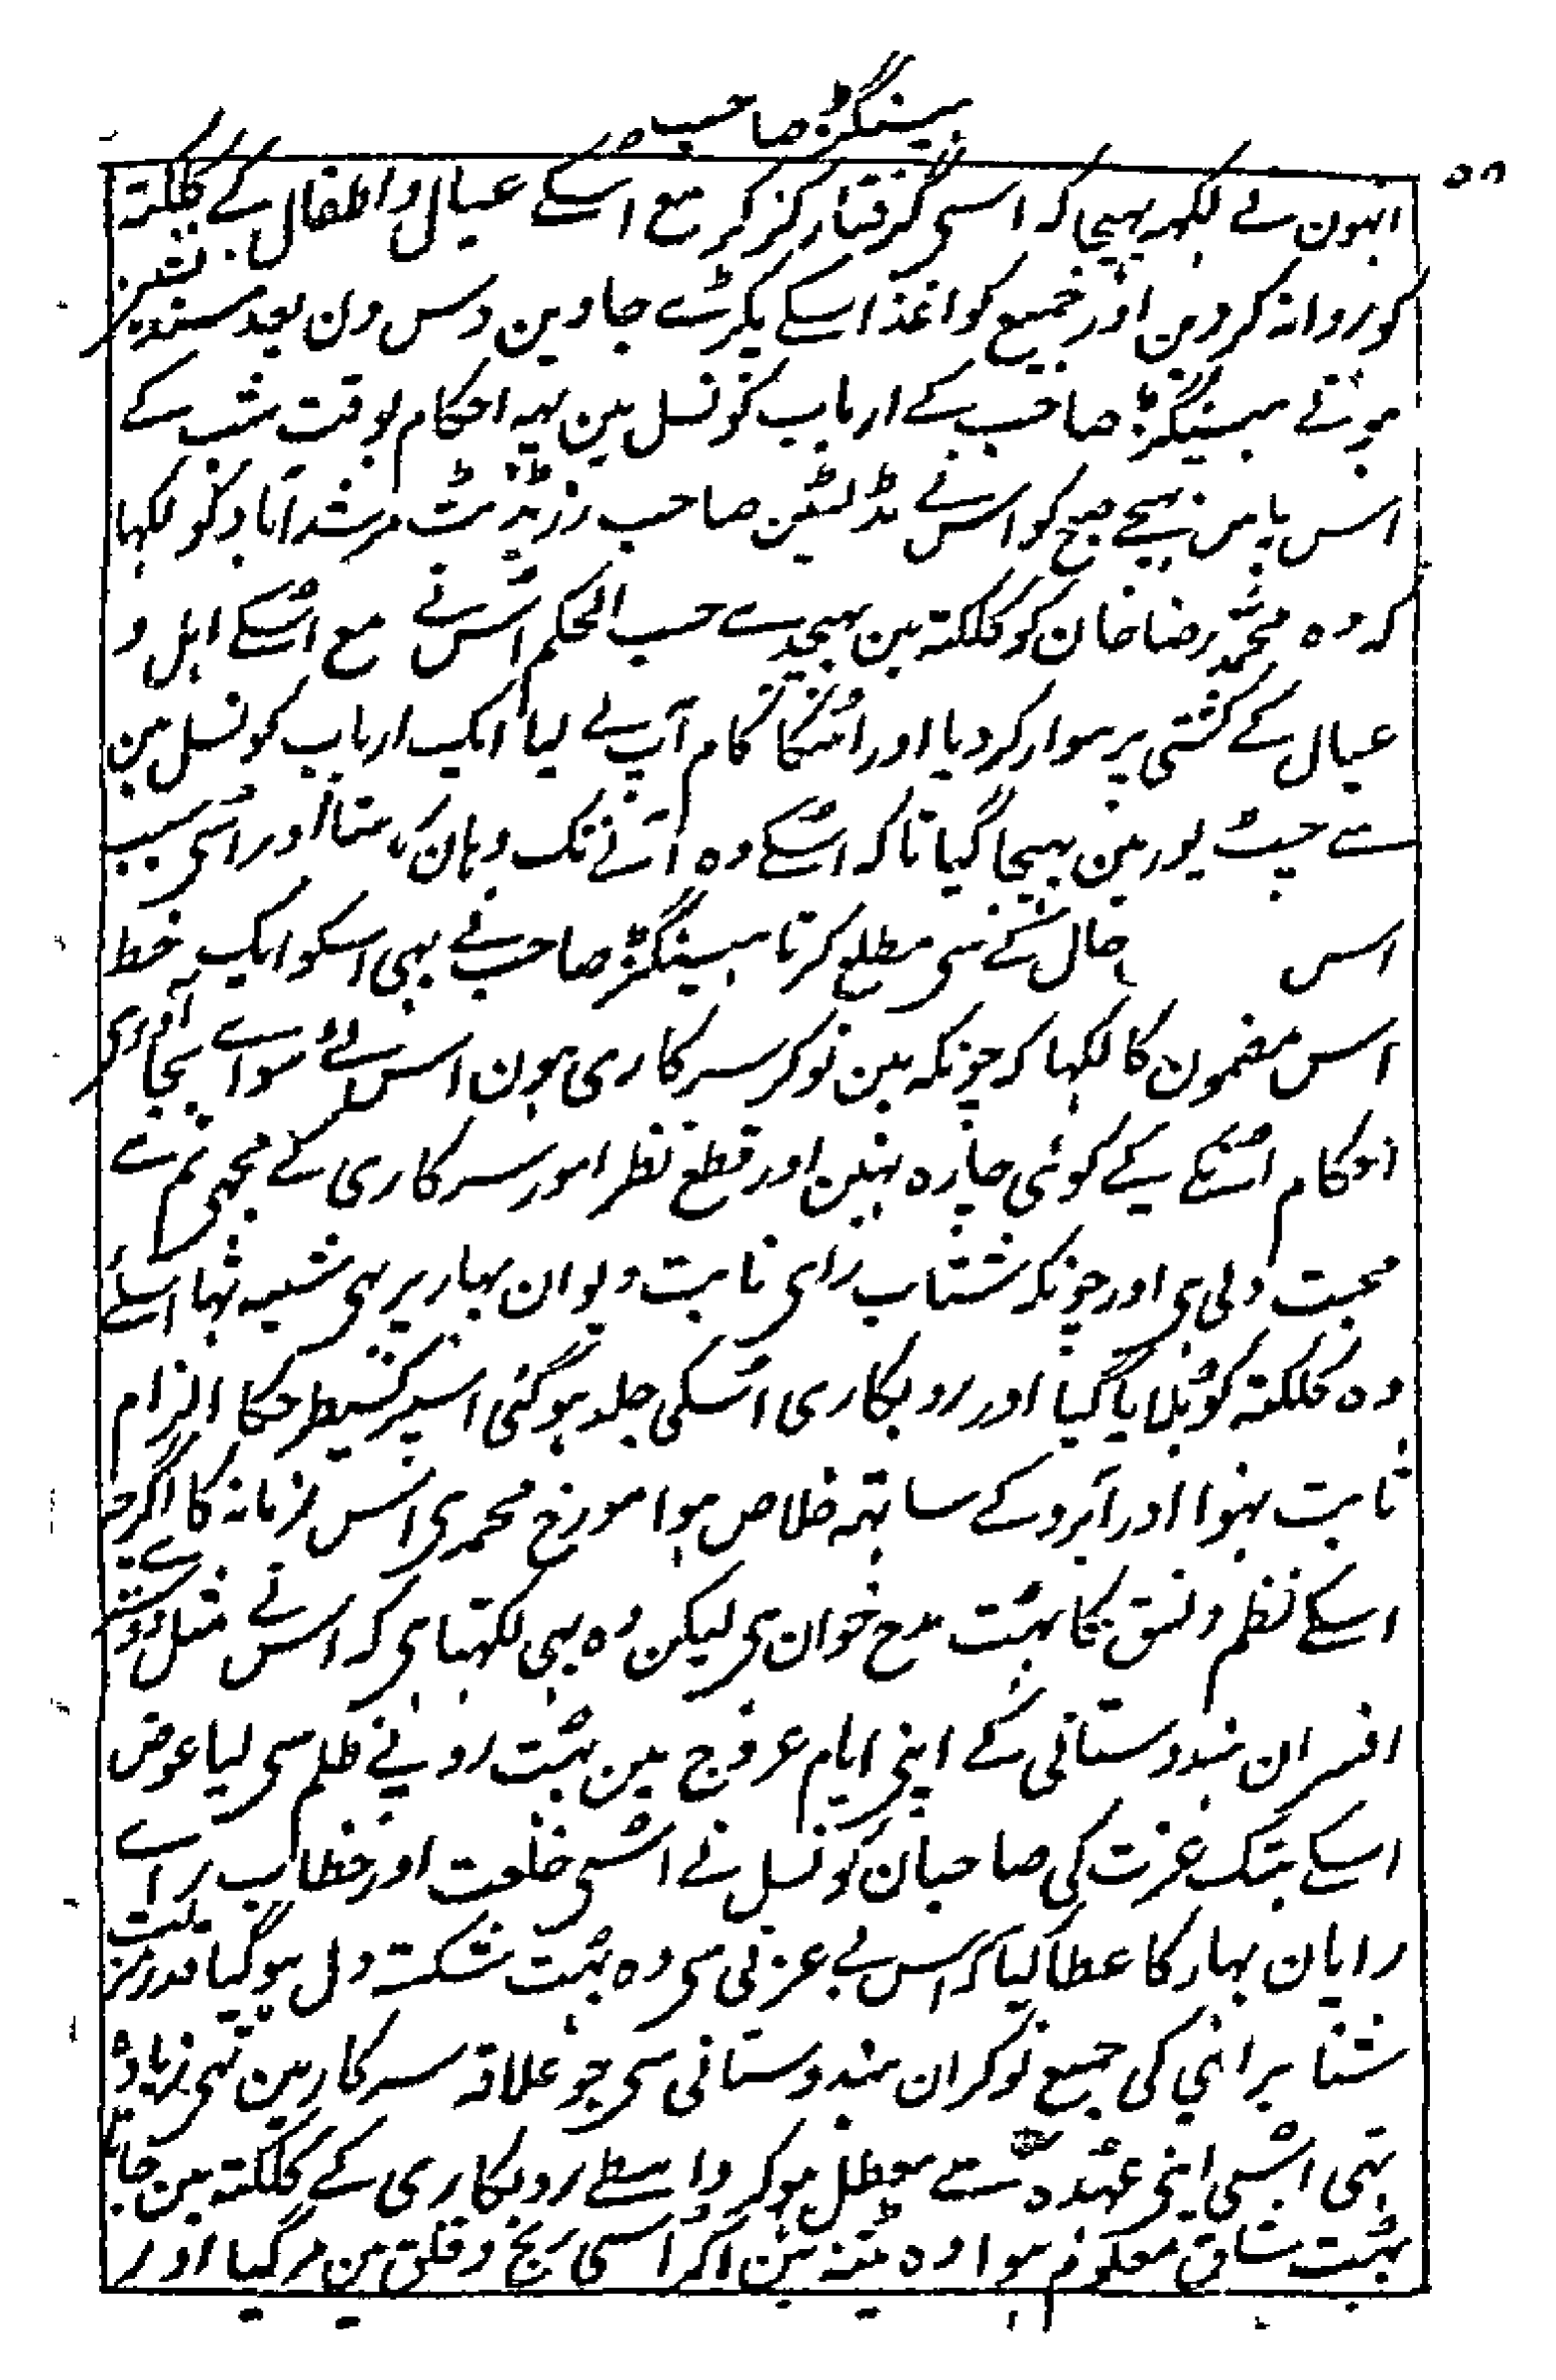 ہیسٹنگز صاحب
۵۸
انہون نے لکہہ بہیجا کہ اسی گرفتار کر کر مع اُسکے عیال و اطفال کے کلکتہ
کو روانہ کردین اور جمیع کواغذ اسکے پکڑے جاوین دس دن بعد مسند نشین
ہونے ہیسٹنگز صاحب کے ارباب کونسل مین یہہ احکام بوقت شب کے
اس پاس پہنچے صبح کو اس نے مڈلٹین صاحب رزیڈنٹ مرشدآباد کو لکہا
کہ وہ محمد رضا خان کو کلکتہ مین بہیجدے حسب الحکم اُس نے مع اُسکے اہل و
عیال کے کشتی پر سوار کردیا اور اُسکا کام آپ لے لیا ایک ارباب کونسل مین
سے چیت پور مین بہیجا گیا تاکہ اُسکے وہ آنے تک وہان رہتا اور اُسی سبب
اس حال کے سی مطلع کرتا ہیسٹنگز صاحب نے بہی اسکو ایک خط
اس مضمون کا لکہا کہ چونکہ مین نوکر سرکاری ہون اس لئے سواے بجاآوری
احکام اُسکے کے کوئی چارہ نہین اور قطع نظر امور سرکاری کے مجہی تم سے
محبت دلی ہی اور چونکہ شتاب رای نایب دیوان بہار پر بہی شبہہ تہا اسلئے
وہ کلکتہ کو بلایا گیا اور روبکاری اُسکی جلد ہوگئی اسپر کسیطرحکا الزام
ثابت نہوا اور آبرو کے ساتہہ خلاص ہوا مورخ محمدی اُس زمانہ کا اگرچہ
اسکے نظم و نسق کا بہت مدح خوان ہی لیکن وہ بہی لکہتا ہی کہ اس نے مثل دوسرے
افسران ہندوستانی کے اپنی ایام عروج مین بہت روپئے ظلم سی لیا عوض
اسکے ہتک عزت کی صاحبان کونسل نے اُسی خلعت اور خطاب راے
رایان بہار کا عطا کیا کہ اس بے عزتی سی وہ بہت شکستہ دل ہوگیا قدر منزلت
شتاب رائی کی جمیع نوکران ہندوستانی سی جو علاقہ سرکار مین تہی زیادہ
تہی اُسی اپنی عہدہ سے معطل ہوکر واسطے روبکاری کے کلکتہ مین جانا
بہت شاق معلوم ہوا وہ پٹنہ مین آکر اُسی رنج و قلق مین مرگیا اور